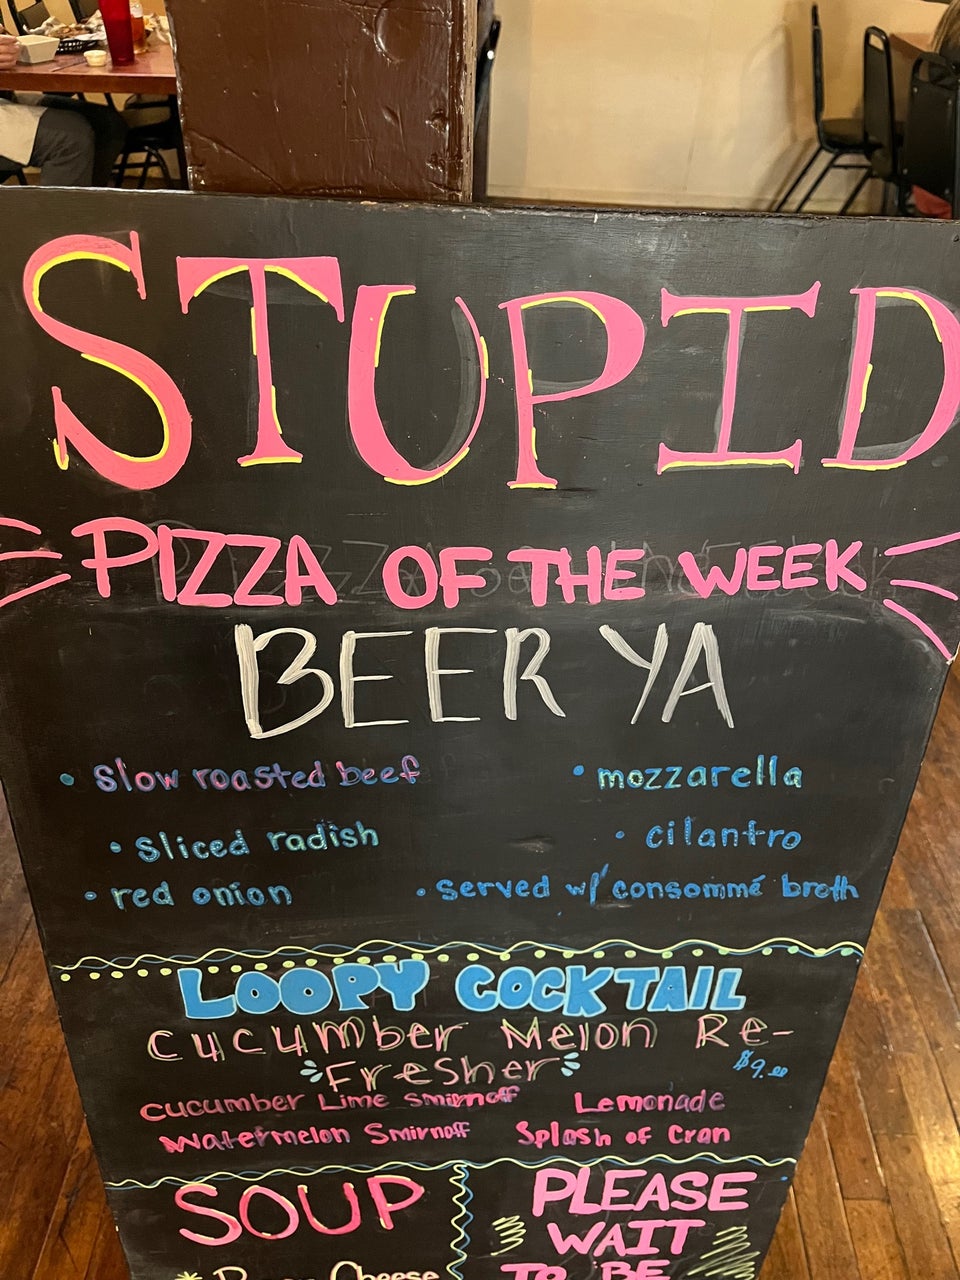 STUPID
PIZZA OF THE WEEK
BEER YA
• slow roasted beef
• mozzarella
• sliced radish
• cilantro
• red onion
• served w/ consommé broth
LOOPY COCKTAIL
Cucumber Melon Re-
Fresher
$9.00
cucumber Lime Smirnoff
Lemonade
Watermelon Smirnoff
Splash of Cran
SOUP
PLEASE
WAIT
TO BE
Cheese